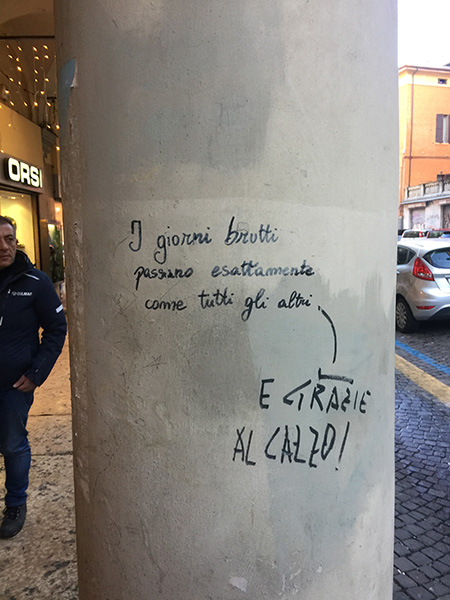 ORSI
COLMAR
I giorni brutti
passano esattamente
come tutti gli altri.
E GRAZIE
AL CALZO!